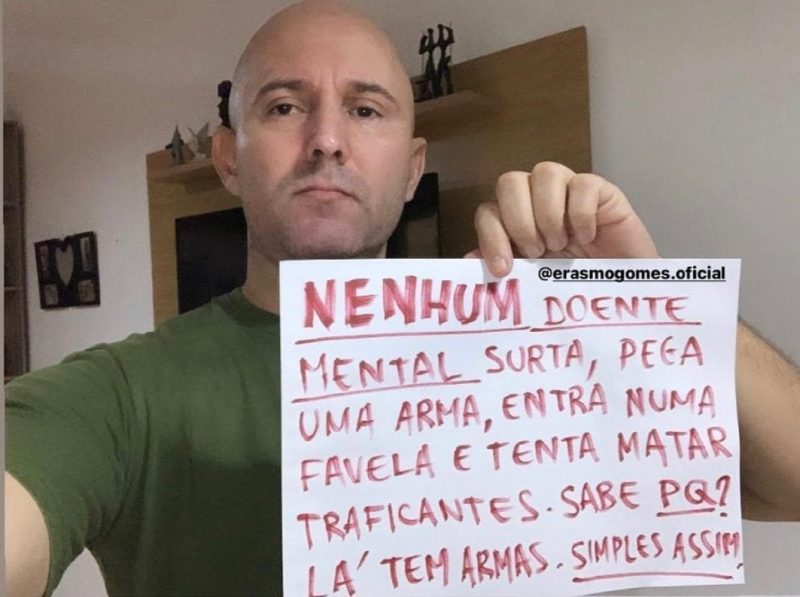 @erasmogomes.oficial
NENHUM DOENTE
MENTAL SURTA, PEGA
UMA ARMA, ENTRA NUMA
FAVELA E TENTA MATAR
TRAFICANTES. SABE PQ?
LÁ TEM ARMAS. SIMPLES ASSIM.